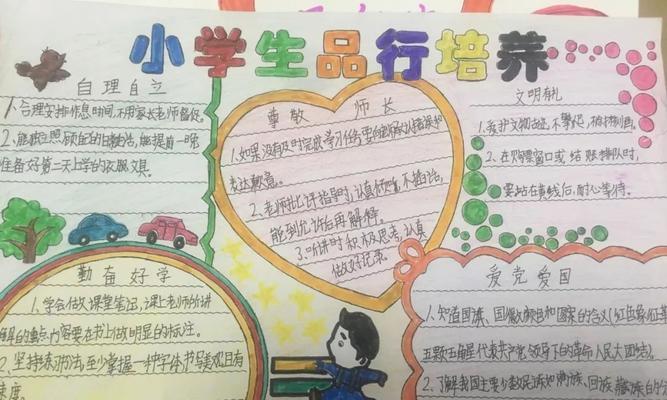 小学生品行培养
自理自立
1、合理安排作息时间,不用家长老师督促。
2、能独立照顾自己的日常生活,能提前一晚
准备好第二天上学的衣服文具。
尊敬 师长
1.如果没有及时完成学习任务要向老师承认错误和
表达歉意。
2.老师批评指导时,认真倾听,不插话,
能到允许后再解释。
3.听讲时积极思考,认真
做好记录。
文明有礼
1.爱护文物古迹,不攀爬,
2.在购票窗口或结账排队时,
要站在黄线后,耐心等待。
勤奋好学
1.学会做课堂笔记,课上老师所讲
的重点内容要在书上做明显的标注。
2、坚持练习书法,至少掌握一种字体,书写美观且有
速度。
爱党爱国
1.知道国旗、国徽颜色和图案的含义(红色象征革
五颗五角星代表共产党领导下的革命人民大团结)。
2.了解我国主要少数民族如满族、回族、藏族的